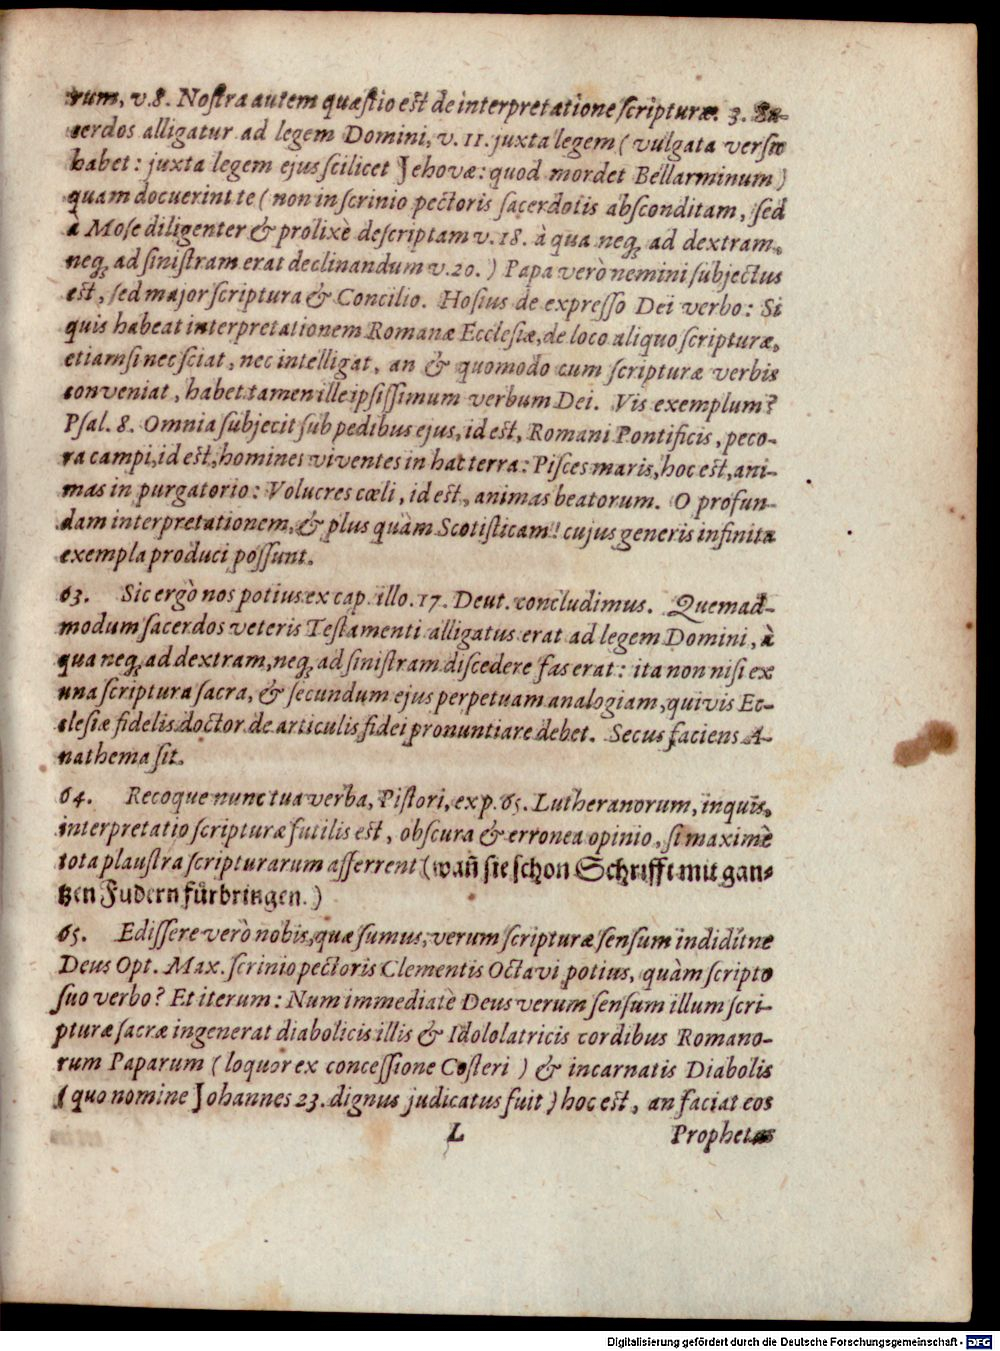 rum, v.8. Noſtra autem quæſtio eſt de interpretatione ſcripturæ. 3. Sa-
cerdos alligatur ad legem Domini, v. 11. juxta legem ( vulgata verſio
habet: juxta legem ejus ſcilicet Jehovæ: quod mordet Bellarminum )
quam docuerint te ( non in ſcrinio pectoris ſacerdotis abſconditam, ſed
à Moſe diligenter & prolixè deſcriptam v. 18. à qua neq; ad dextram,
neq; ad ſiniſtram erat declinandum v. 20. ) Papa verò nemini ſubjectus
eſt, ſed major ſcriptura & Concilio. Hoſius de expreſſo Dei verbo: Si
quis habeat interpretationem Romanæ Eccleſiæ, de loco aliquo ſcripturæ,
etiamſi nec ſciat, nec intelligat, an & quomodo cum ſcripturæ verbis
conveniat, habet tamen ille ipſiſſimum verbum Dei. Vis exemplum?
Pſal. 8. Omnia ſubjecit ſub pedibus ejus, id eſt, Romani Pontificis, peco-
ra campi, id eſt, homines viventes in hac terra: Piſces maris, hoc eſt, ani-
mas in purgatorio: Volucres cœli, id eſt, animas beatorum. O profun-
dam interpretationem, & plus quàm Scotiſticam!! cujus generis infinita
exempla produci poſſunt.
63. Sic ergò nos potius ex cap. illo. 17. Deut. concludimus. Quemad-
modum ſacerdos veteris Teſtamenti alligatus erat ad legem Domini, à
qua neq; ad dextram, neq; ad ſiniſtram diſcedere fas erat: ita non niſi ex
una ſcriptura ſacra, & ſecundum ejus perpetuam analogiam, quivis Ec-
cleſiæ fidelis doctor de articulis fidei pronuntiare debet. Secus faciens A-
nathema ſit.
64. Recoque nunc tua verba, Piſtori, ex p. 65. Lutheranorum, inquis,
interpretatio ſcripturæ futilis eſt, obſcura & erronea opinio, ſi maximè
tota plauſtra ſcripturarum afferrent (wañ ſie ſchon Schrifft mit gan-
tzen Fudern fürbringen.)
65. Ediſſere verò nobis, quæ ſumus, verum ſcripturæ ſenſum indiditne
Deus Opt. Max. ſcrinio pectoris Clementis Octavi potius, quàm ſcripto
ſuo verbo? Et iterum: Num immediatè Deus verum ſenſum illum ſcri-
pturæ ſacræ ingenerat diabolicis illis & Idololatricis cordibus Romano-
rum Paparum ( loquor ex conceſſione Coſteri ) & incarnatis Diabolis
( quo nomine Johannes 23. dignus judicatus fuit ) hoc eſt, an faciat eos
L Prophetas
Digitalisierung gefördert durch die Deutsche Forschungsgemeinschaft - DFG